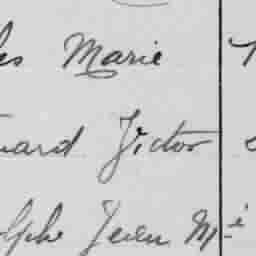 es Marie
uard Victor
olphe Jean Mie